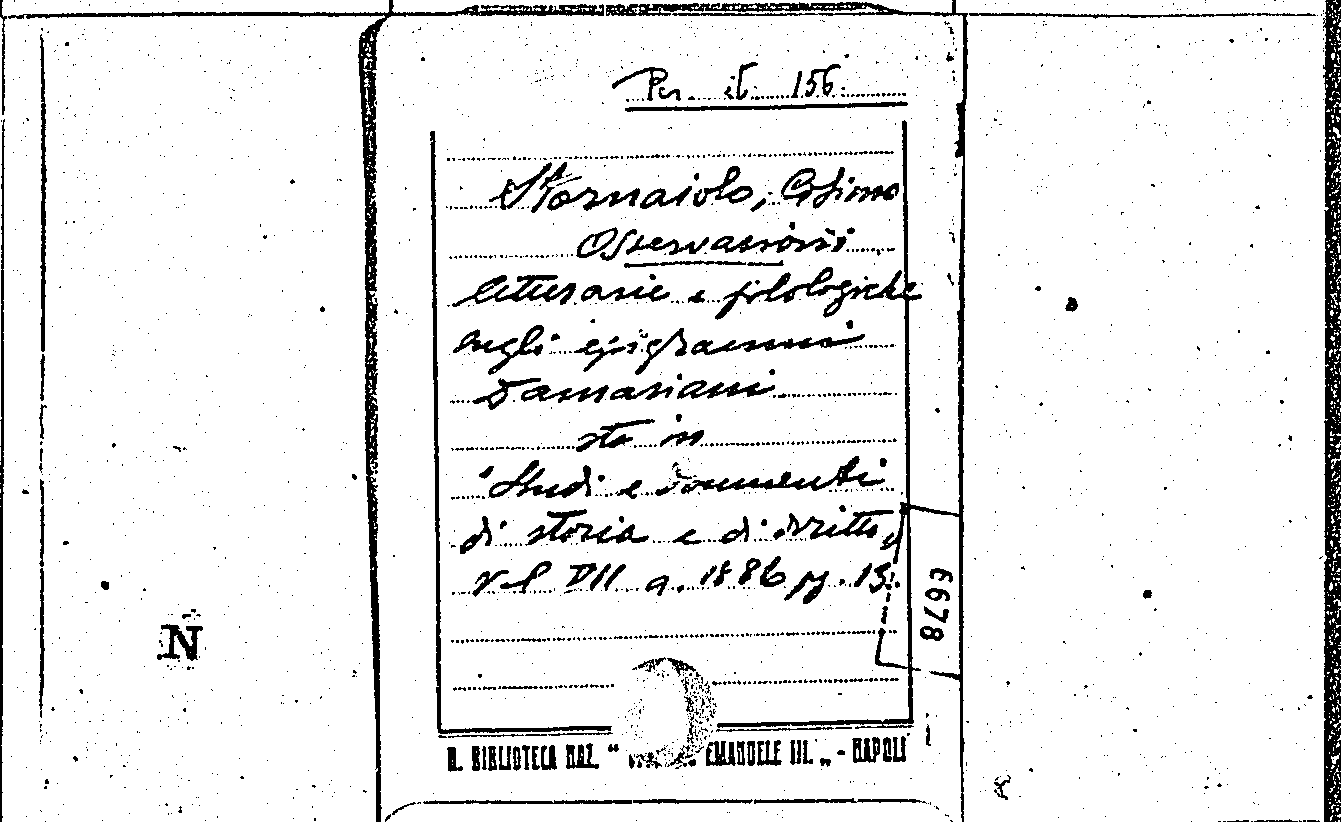 Per. it. 156.
Stornaiolo, Cosimo
Osservazioni
letterarie e filologiche
sugli epigrammi
Damasiani
sta in
"Studi e documenti
di storia e di dritto,
vol VII a. 1886 pg. 13.
6678
N
R. BIBLIOTECA NAZ. " EMANUELE III. „ - NAPOLI